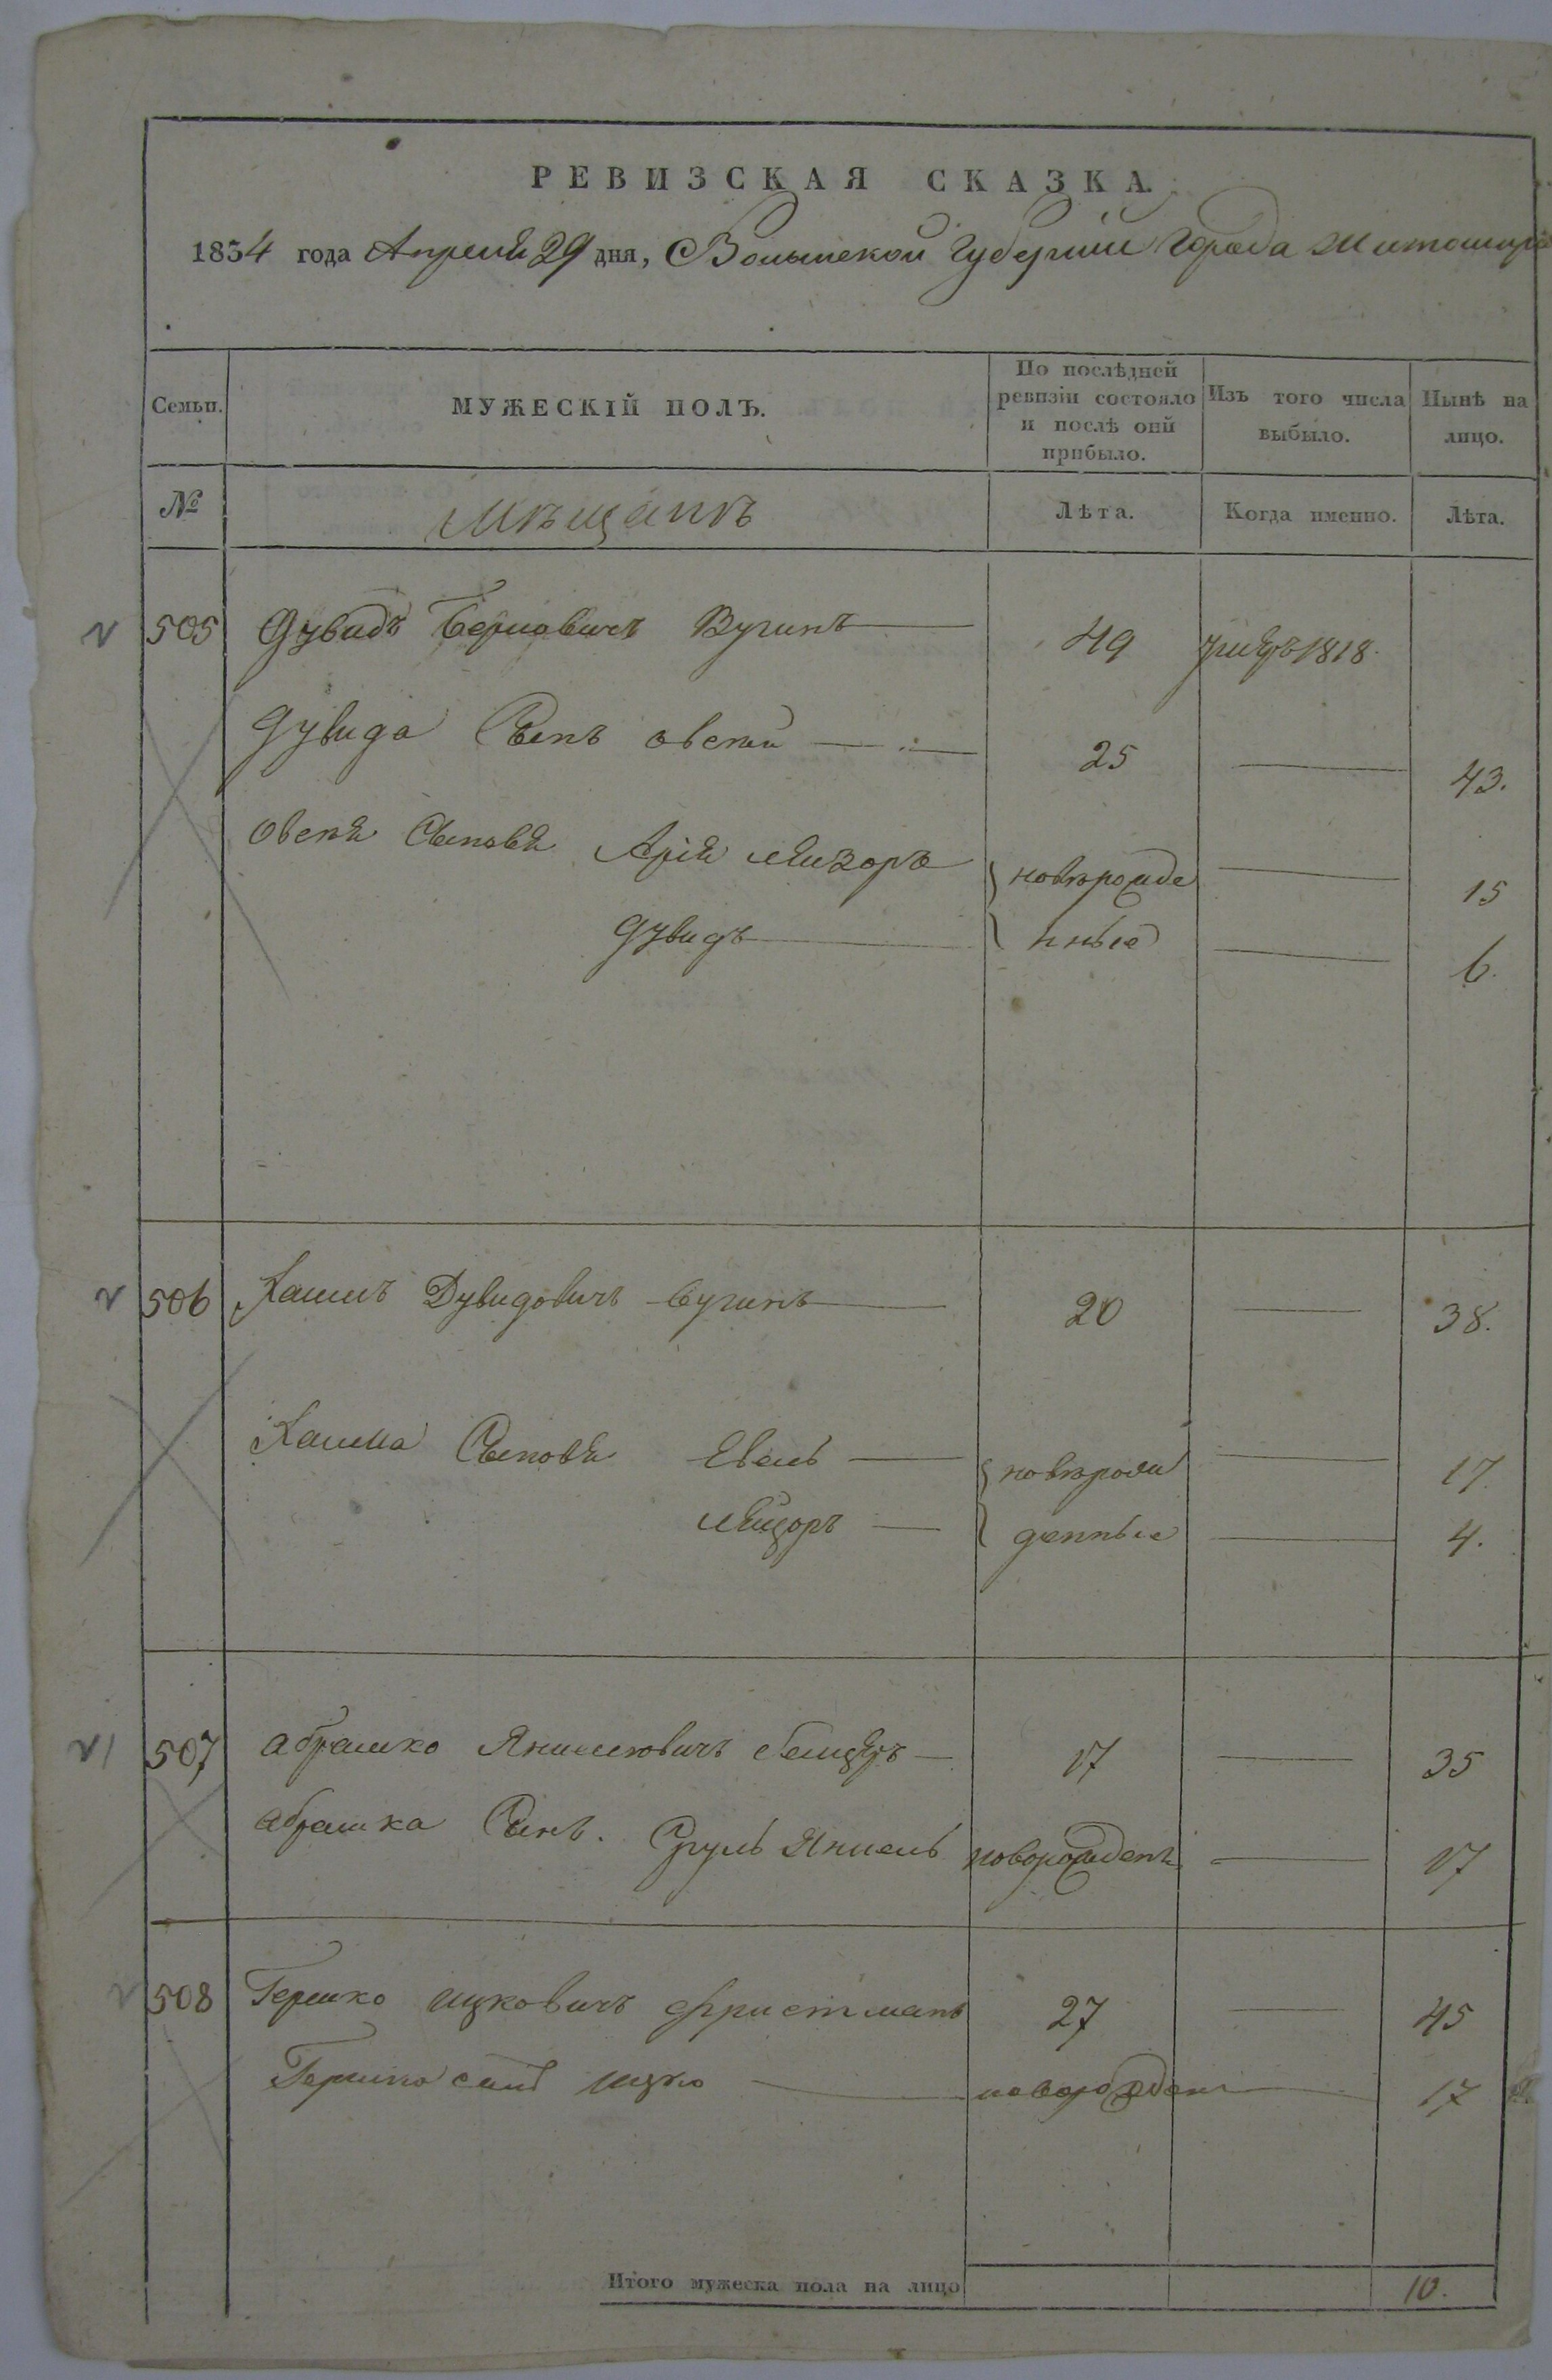 РЕВИЗСКАЯ СКАЗКА.
1834 года Апреля 29 дня, Волынской Губернии Города Житомира
Семьи. МУЖЕСКІЙ ПОЛЪ. По послѣдней ревизіи состояло и послѣ оній прибыло. Изъ того числа выбыло. Нынѣ на лицо.
№ Мѣщанъ Лѣта. Когда именно. Лѣта.
505 Дувидъ Берковичъ Вугинъ 49 1818.
Дувида Сынъ овсей 25 43.
овсея Сыновя Арія лейзоръ новърожде 15
Дувидъ нные 6.
506 Хаимъ Дувидовичъ вугинъ 20 38.
Хаима Сыновя новърож 17
денные 4.
507 абрашко Янкелювичъ 17 35
абрашка Сынъ. Сруль Янкель новорожденъ 17
508 Гершко ицковичъ 27 45
Гершка сынъ ицко новорожден 17
Итого мужеска пола на лицо 10.